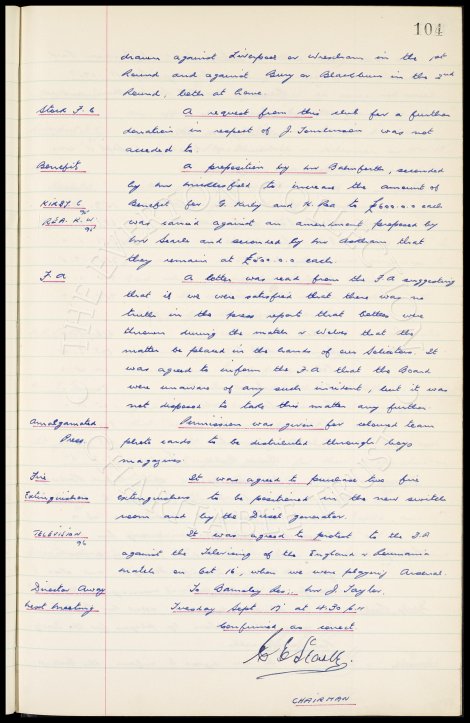 104
drawn against Liverpool or Wrexham in the 1st
Round and against Bury or Blackburn in the 2nd
Round, both at home.
Stork F.C A request from this club for a further
donation in respect of J. Tomlinson was not
acceded to.
Benefit A proposition by Mr seconded
by Mr to increase the amount of
KIRBY G Benefit for G. Kirby and K. Rea to £600.0.0 each
95
REA. K.W was carried against an amendment proposed by
95
Mr Searle and seconded by Mr that
they remain at £500.0.0 each
F.A A letter was read from the F.A suggesting
that if we were satisfied that there was no
truth in the press report that bottles were
thrown during the match v Wolves that the
matter be placed in the hands of our Solicitors. It
was agreed to inform the F.A that the Board
were unaware of any such incident, but it was
not disposed to take this matter any further.
Amalgamated Permission was given for coloured team
Press. photo cards to be distributed through boys
magazines.
Fire It was agreed to purchase two fire
Extinguishers extinguishers to be positioned in the new switch
room and by the Diesel generator.
TELEVISION It was agreed to protest to the F.A
96
against the Televising of the England v Rumania
match on Oct 16, when we were playing Arsenal.
Director Away To Barnsley Res... Mr J. Taylor.
Next Meeting Tuesday Sept 17 at 4.30 p.m
Confirmed as correct
CHAIRMAN